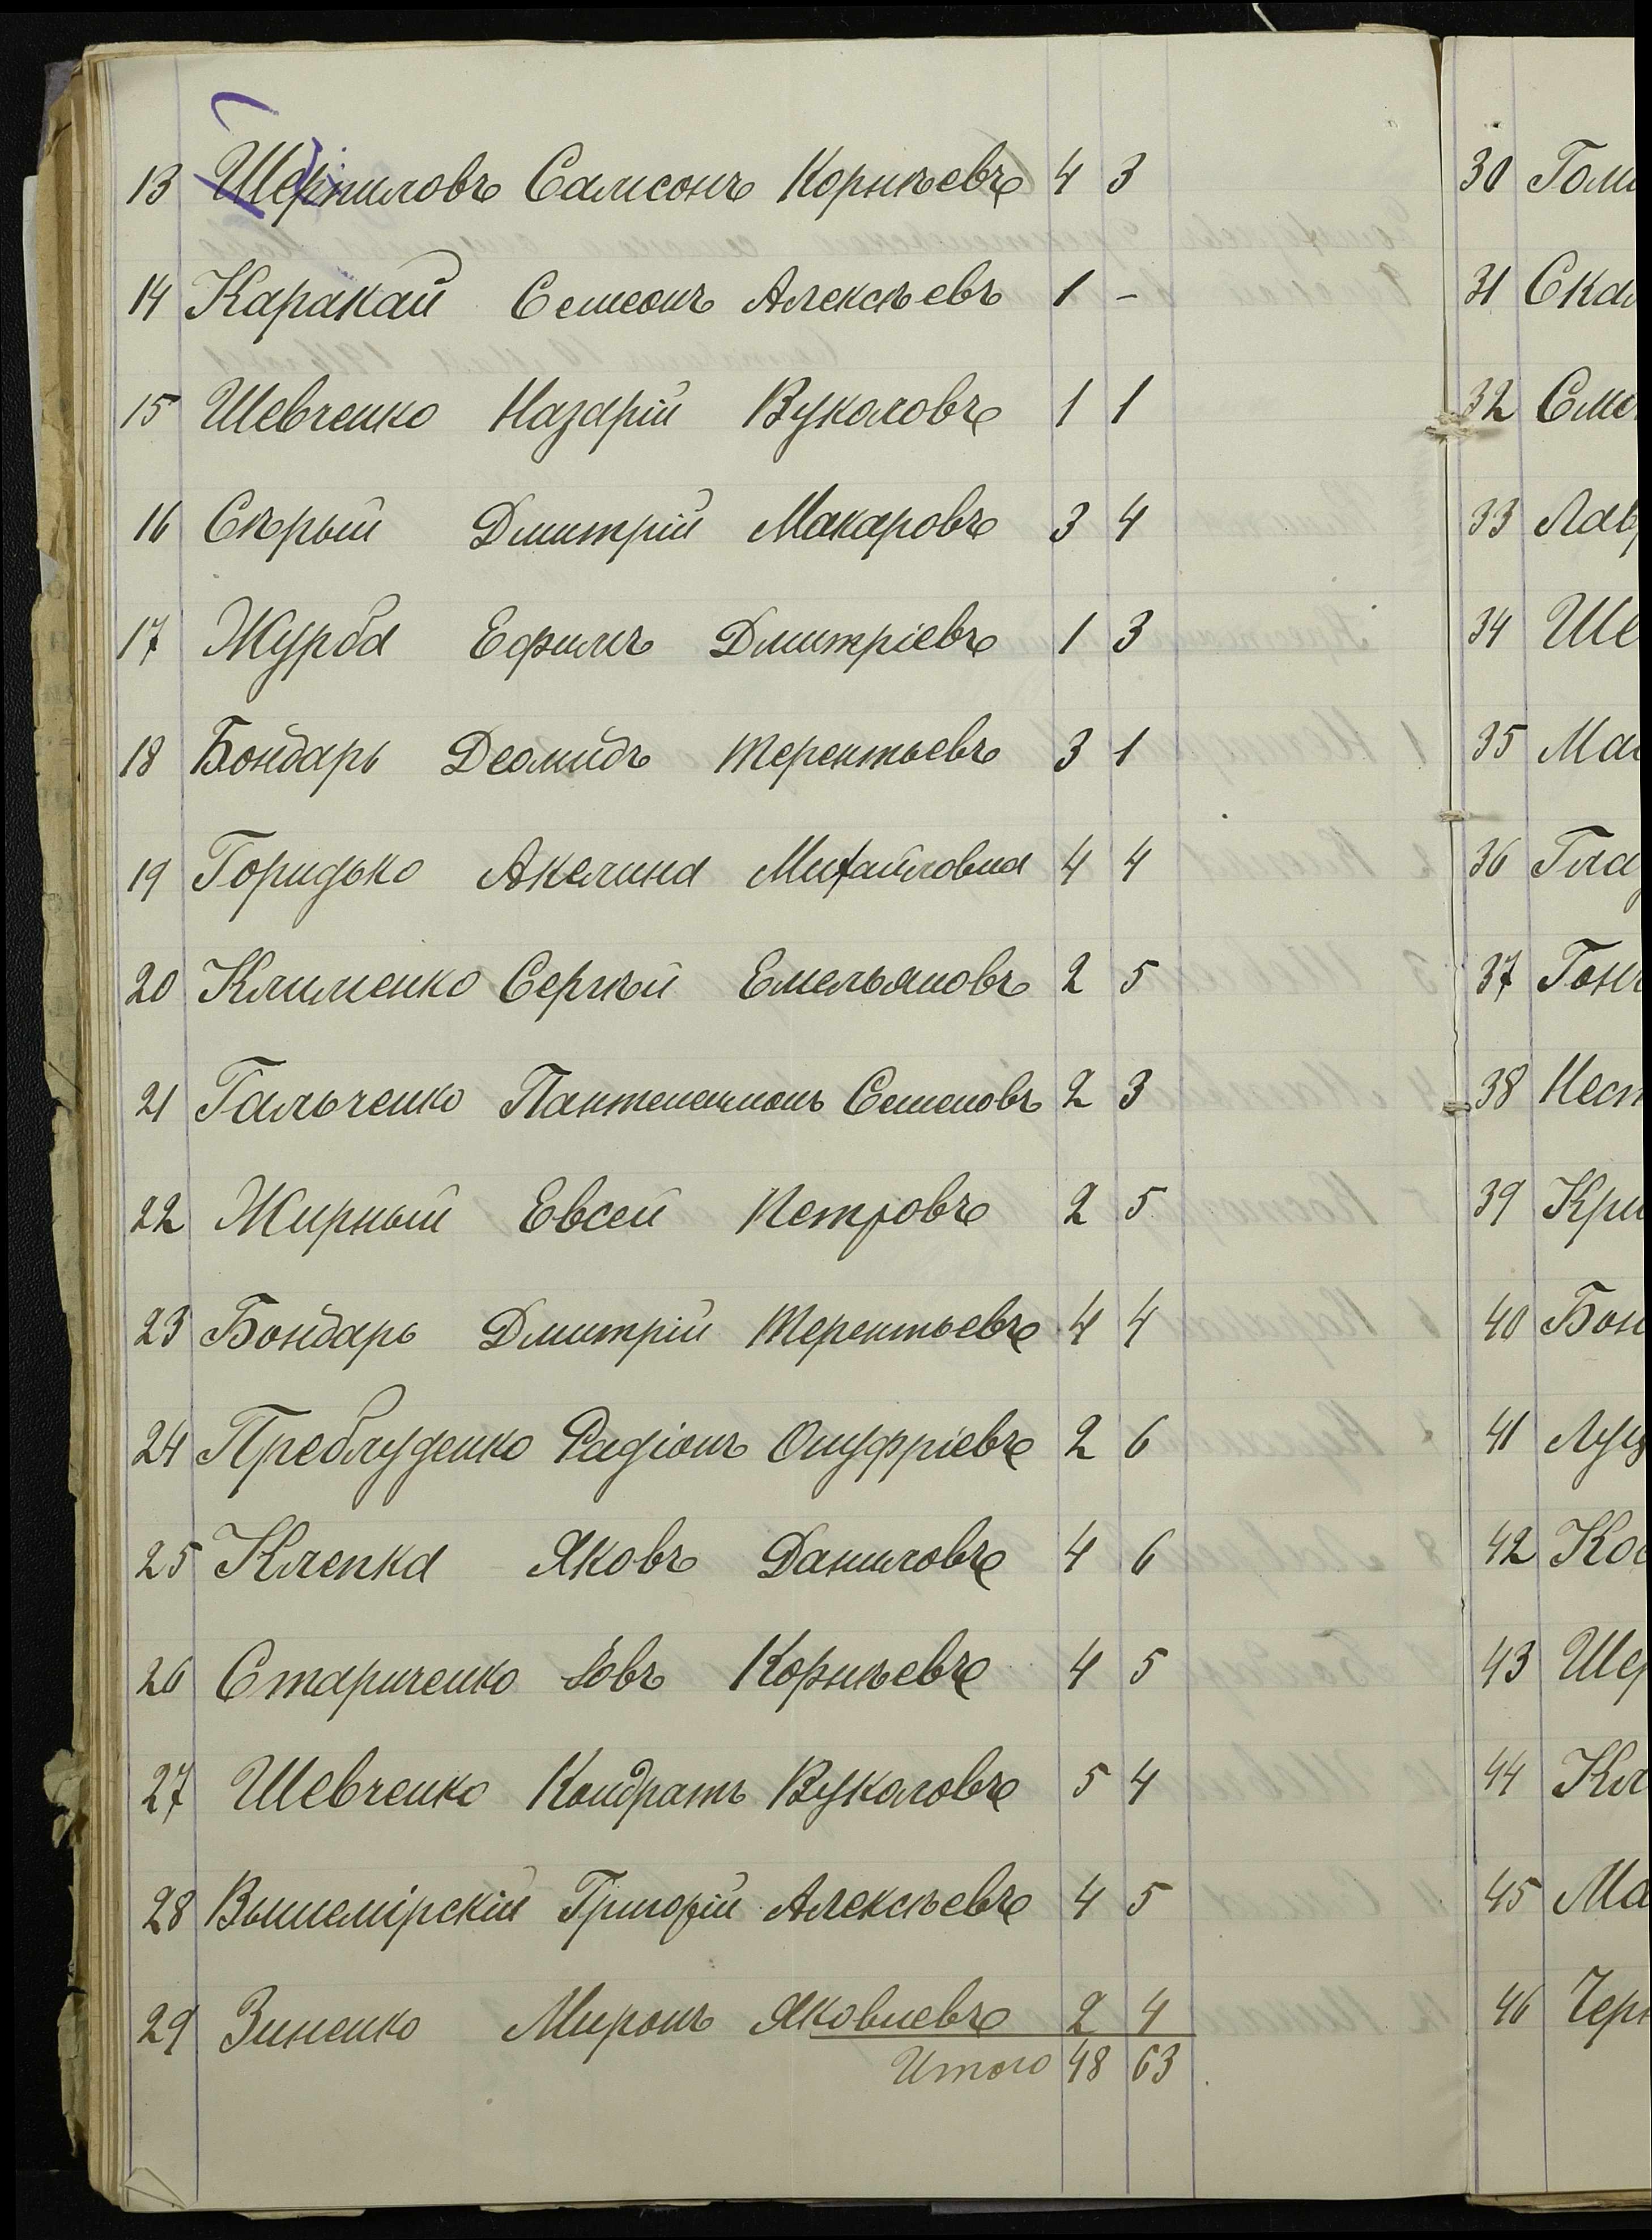 13 Шерпиловъ Самсонъ Корнѣевъ 4 3
14 Каракай Семеонъ Алексѣевъ 1 -
15 Шевченко Назарій Вуколовъ 1 1
16 Сѣрый Дмитрій Макаровъ 3 4
17 Журба Ефимъ Дмитріевъ 1 3
18 Бондарь Деомидъ Терентьевъ 3 1
19 Горидько Акелина Михайловна 4 4
20 Клименко Сергѣй Емельяновъ 2 5
21 Гальченко Пантелеимонъ Семеновъ 2 3
22 Жирный Евсей Петровъ 2 5
23 Бондарь Дмитрій Терентьевъ 4 4
24 Преблуденко Радіонъ Онуфріевъ 2 6
25 Клепка Яковъ Даниловъ 4 6
26 Стариченко Іовъ Корнѣевъ 4 5
27 Шевченко Кондратъ Вуколовъ 5 4
28 Вышемірскій Григорій Алексѣевъ 4 5
29 Зиненко Миронъ Яковлевъ 2 4
Итого 48 63
30
31
32
33
34
35
36
37
38
39
40
41
42
43
44
45
46